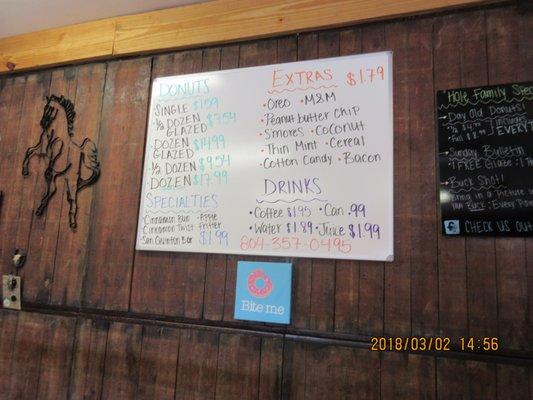 DONUTS
SINGLE $1.59
½ DOZEN $7.54
GLAZED
DOZEN $14.99
GLAZED
½ DOZEN $9.54
DOZEN $17.99
SPECIALTIES
Cinnamon Bun
Apple
Cinnamon Twist
Fritter
San Quinton Bar $1.99
EXTRAS $1.79
Oreo M&M
Peanut butter Chip
S'mores Coconut
Thin Mint Cereal
Cotton Candy Bacon
DRINKS
Coffee $1.95 Can .99
Water $1.89 Juice $1.99
804-357-0495
Bite me
Hole Family Spec
Day Old Donuts!
Includes
EVERY
Sunday
1 FREE Glaze
Buck Shot!
Bring in a Picture
CHECK US OUT
2018/03/02 14:56